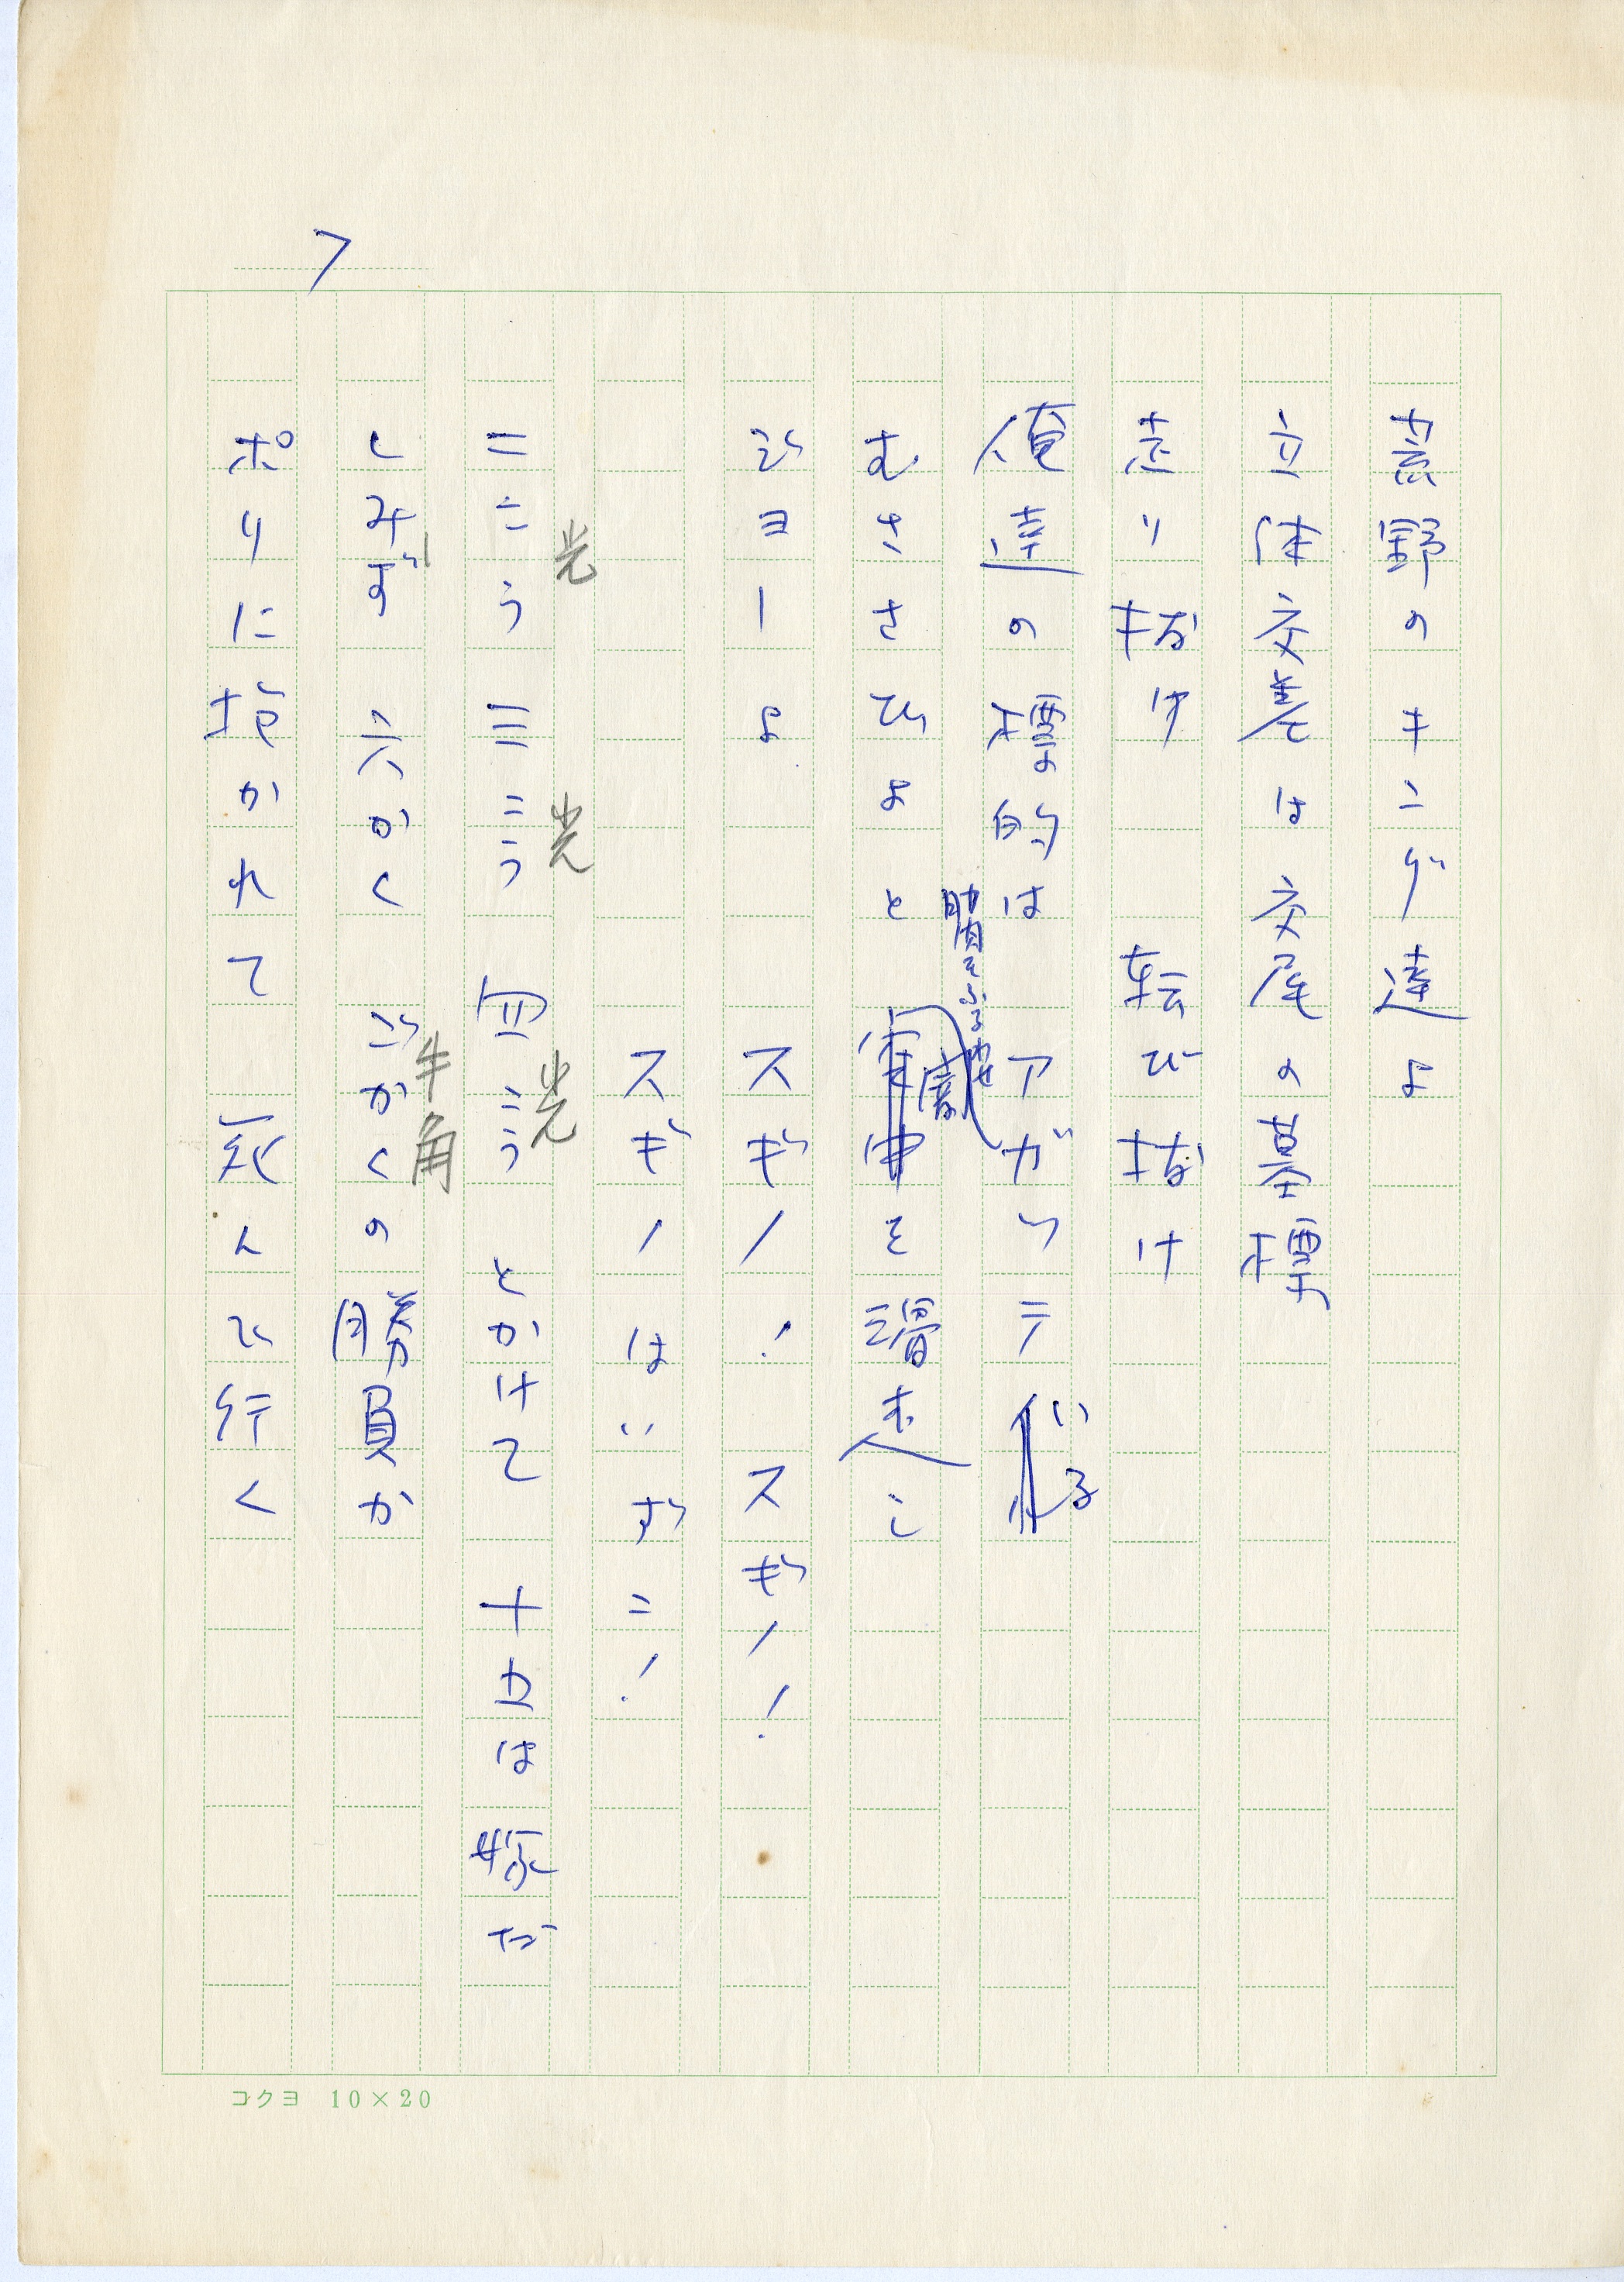 7
荒野のキング達よ
立体交差は交尾の墓標
走り抜け 転び抜け
俺達の標的は アガッテいる
むささびよと を滑走し
ジョーよ スギノ! スギノ!
スギノはいずこ!
二こう 三こう 四こう とかけて 十力は嫁だ
光 光 光
しみず 六かく ごかくの勝負か
半角
ポリに抱かれて 死んで行く
コクヨ 10×20